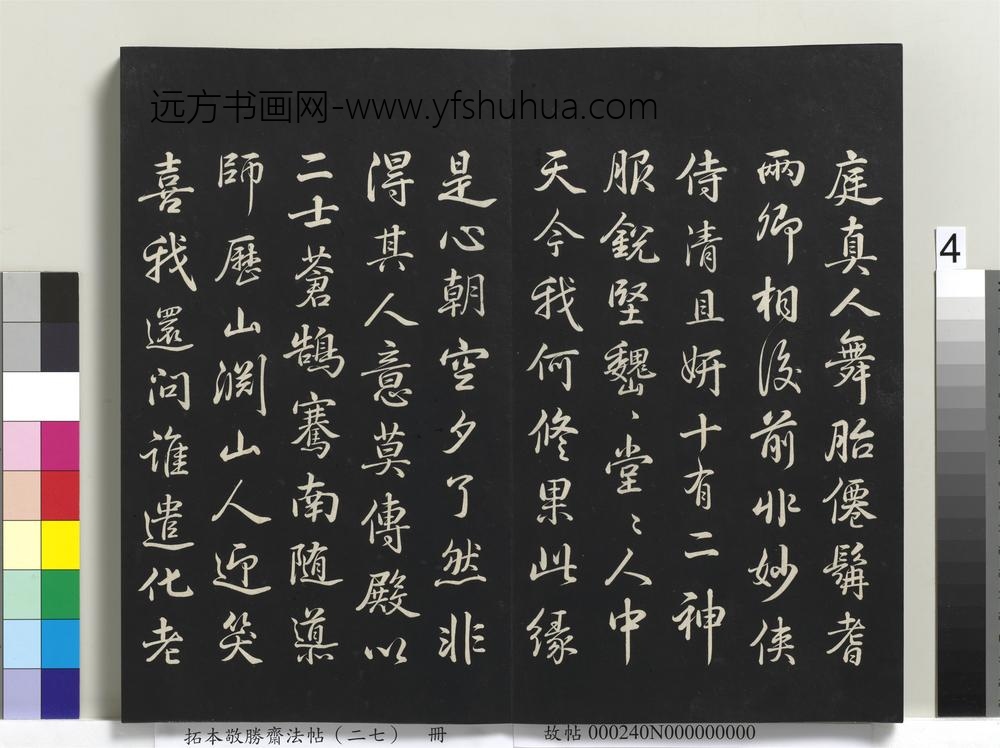 远方书画网-www.yfshuhua.com
庭真人舞胎僊髯耆
兩卿相後前非妙俠
侍清且妍十有二神
服銳堅巍〻堂〻人中
天今我何修果此緣
是心朝空夕了然非
得其人意莫傳殿以
二士蒼鵠騫南隨道
師歷山淵山人迎笑
喜我還問誰遣化老
4
拓本敬勝齋法帖（二七） 冊
故帖 000240N000000000